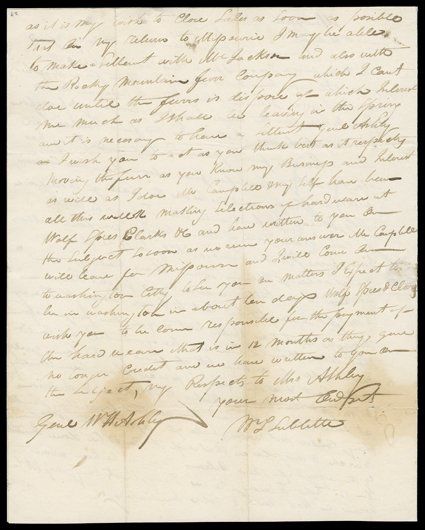 as it is my wish to Close Sales as soon as posible
that on my return to Missourie I may be able
to make a settlement with Mr Jackson and also with
the Rocky Mountain furr Company which I Cant
doe until the furrs is disposed of which Interest
me much as I shall be leaving in the Spring
and it is necessary to have a settlement Genl Ashley
I wish you to act as you think best as it respects
moving the furr as you know my Buisness and Interest
as well as I doe Mr Campbell & my self have been
all this week making Selections of hardware at
Wolf Spies Clarks & Co and have written to you on
the Subject so soon as we receive your answer Mr Campbell
will leave for Missourie and I will Come on
to washington City to see you on matters I expect to
be in washington in about ten days Wolf Spies & Clark
wish you to be Come responsible for the payment of
the hard ware that is in 12 months as they give
no longer Credit and we have written to you on
the subject, my Respects to Mrs Ashley
your most Obdt Svt
Genl W H Ashley Wm L Sublette